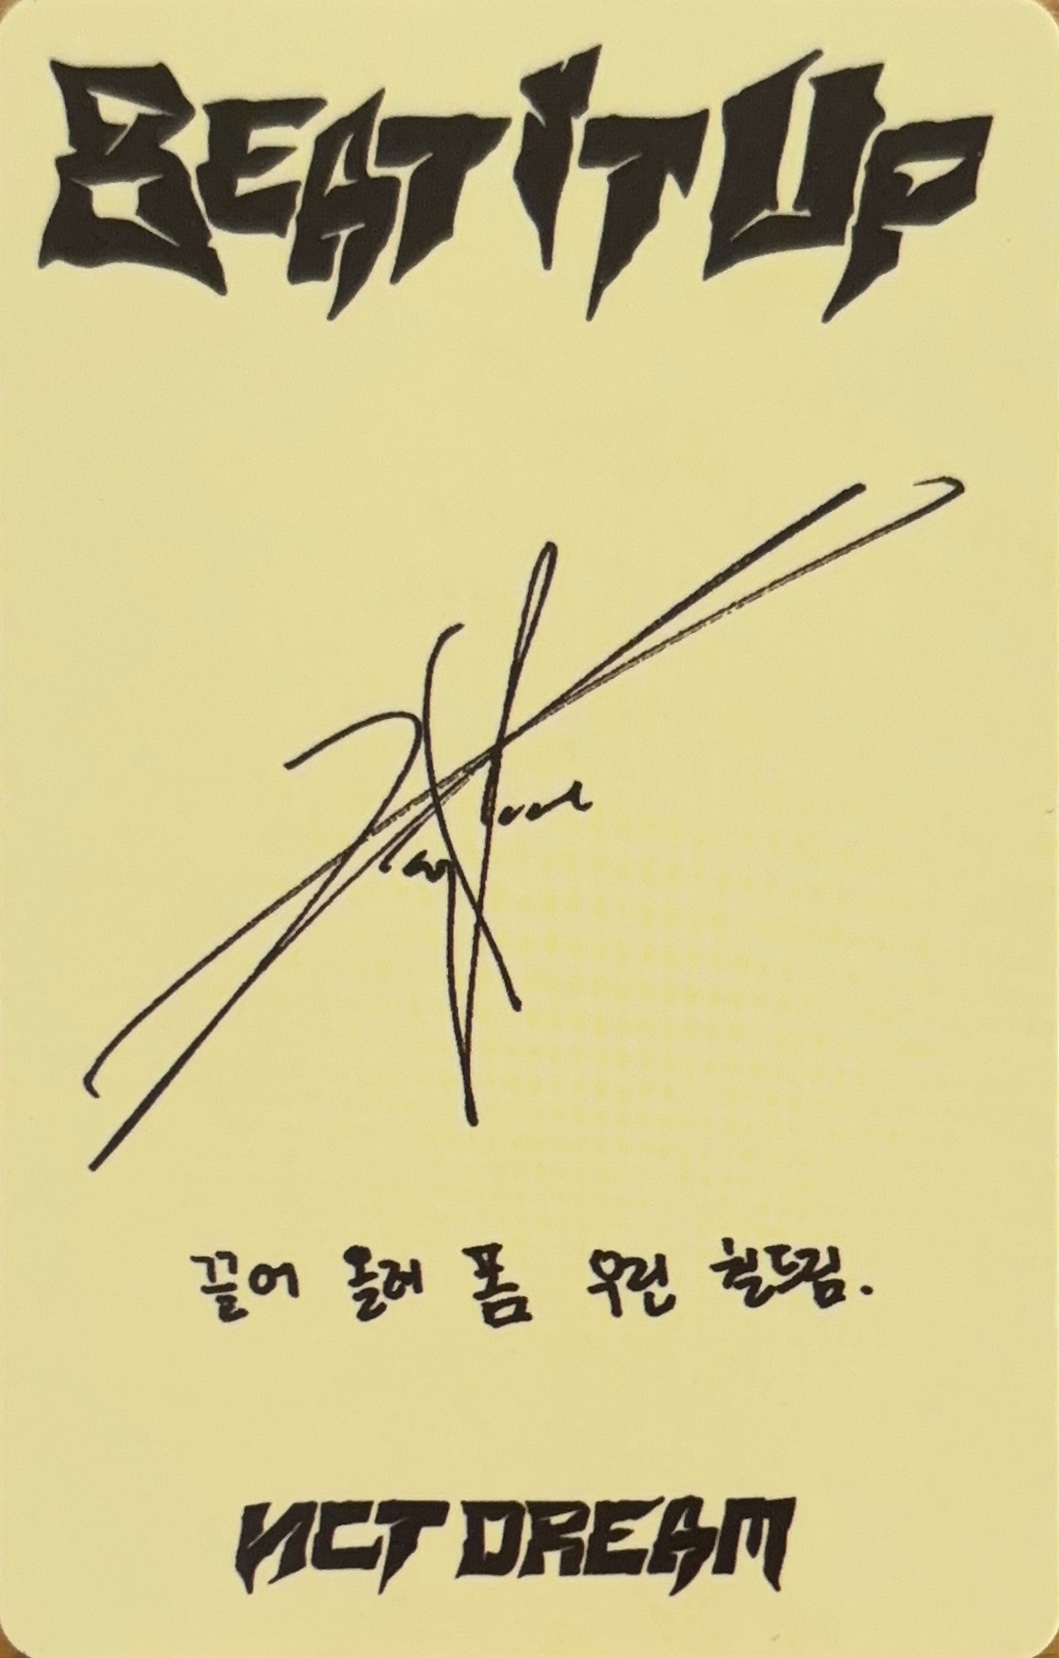 BEAT IT UP
끌어 올려 폼 우린 칠드림.
NCT DREAM